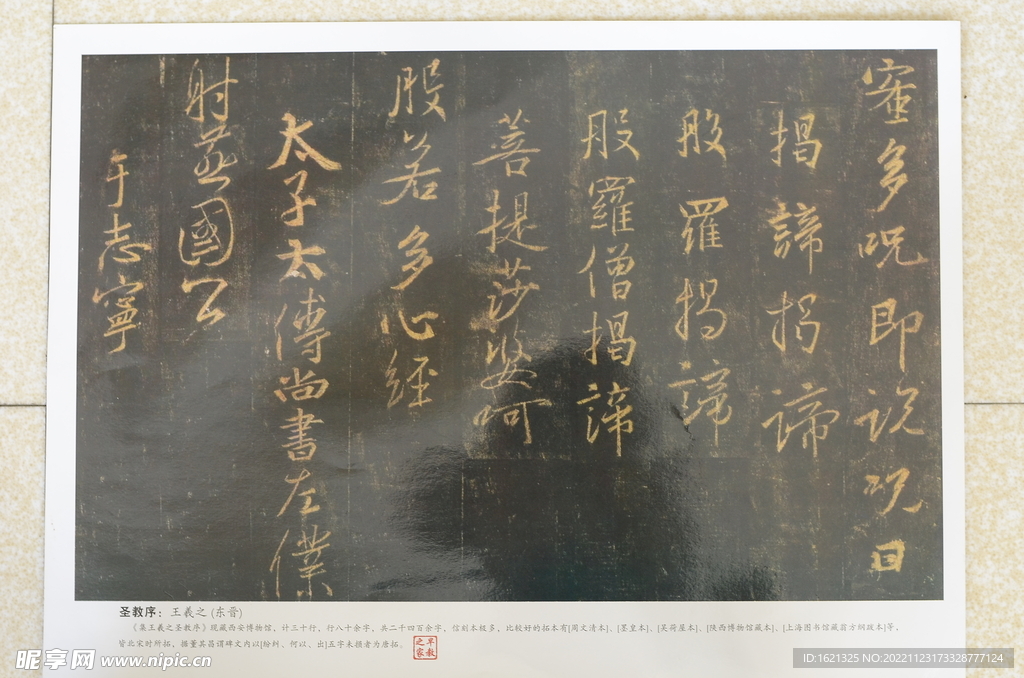 蜜多呪即说呪曰
揭諦揭諦
般羅揭諦
般羅僧揭諦
菩提莎婆呵
般若多心經
太子太傅尚書左僕
射燕國公
于志寧
圣教序：王羲之（东晋）
《集王羲之圣教序》现藏西安博物馆，计三十行，行八十余字，共二千四百余字，信刻本极多，比较好的拓本有[周文清本]、[墨皇本]、[吴荷屋本]、[陕西博物馆藏本]、[上海图书馆藏翦方纲跋本]等，
皆北宋时所拓，据董其昌谓碑文内以[纷纠、何以、出]五字未损者为唐拓。
早教之家
昵享网 www.nipic.cn
ID:1621325 NO:20221123173328777124